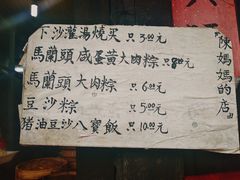 下沙灌湯燒买 只3.00元
馬蘭頭咸蛋黄大肉粽 只8.00元
馬蘭頭大肉粽 只6.00元
豆沙粽 只5.00元
猪油豆沙八寶飯 只10.00元
陳媽媽的店